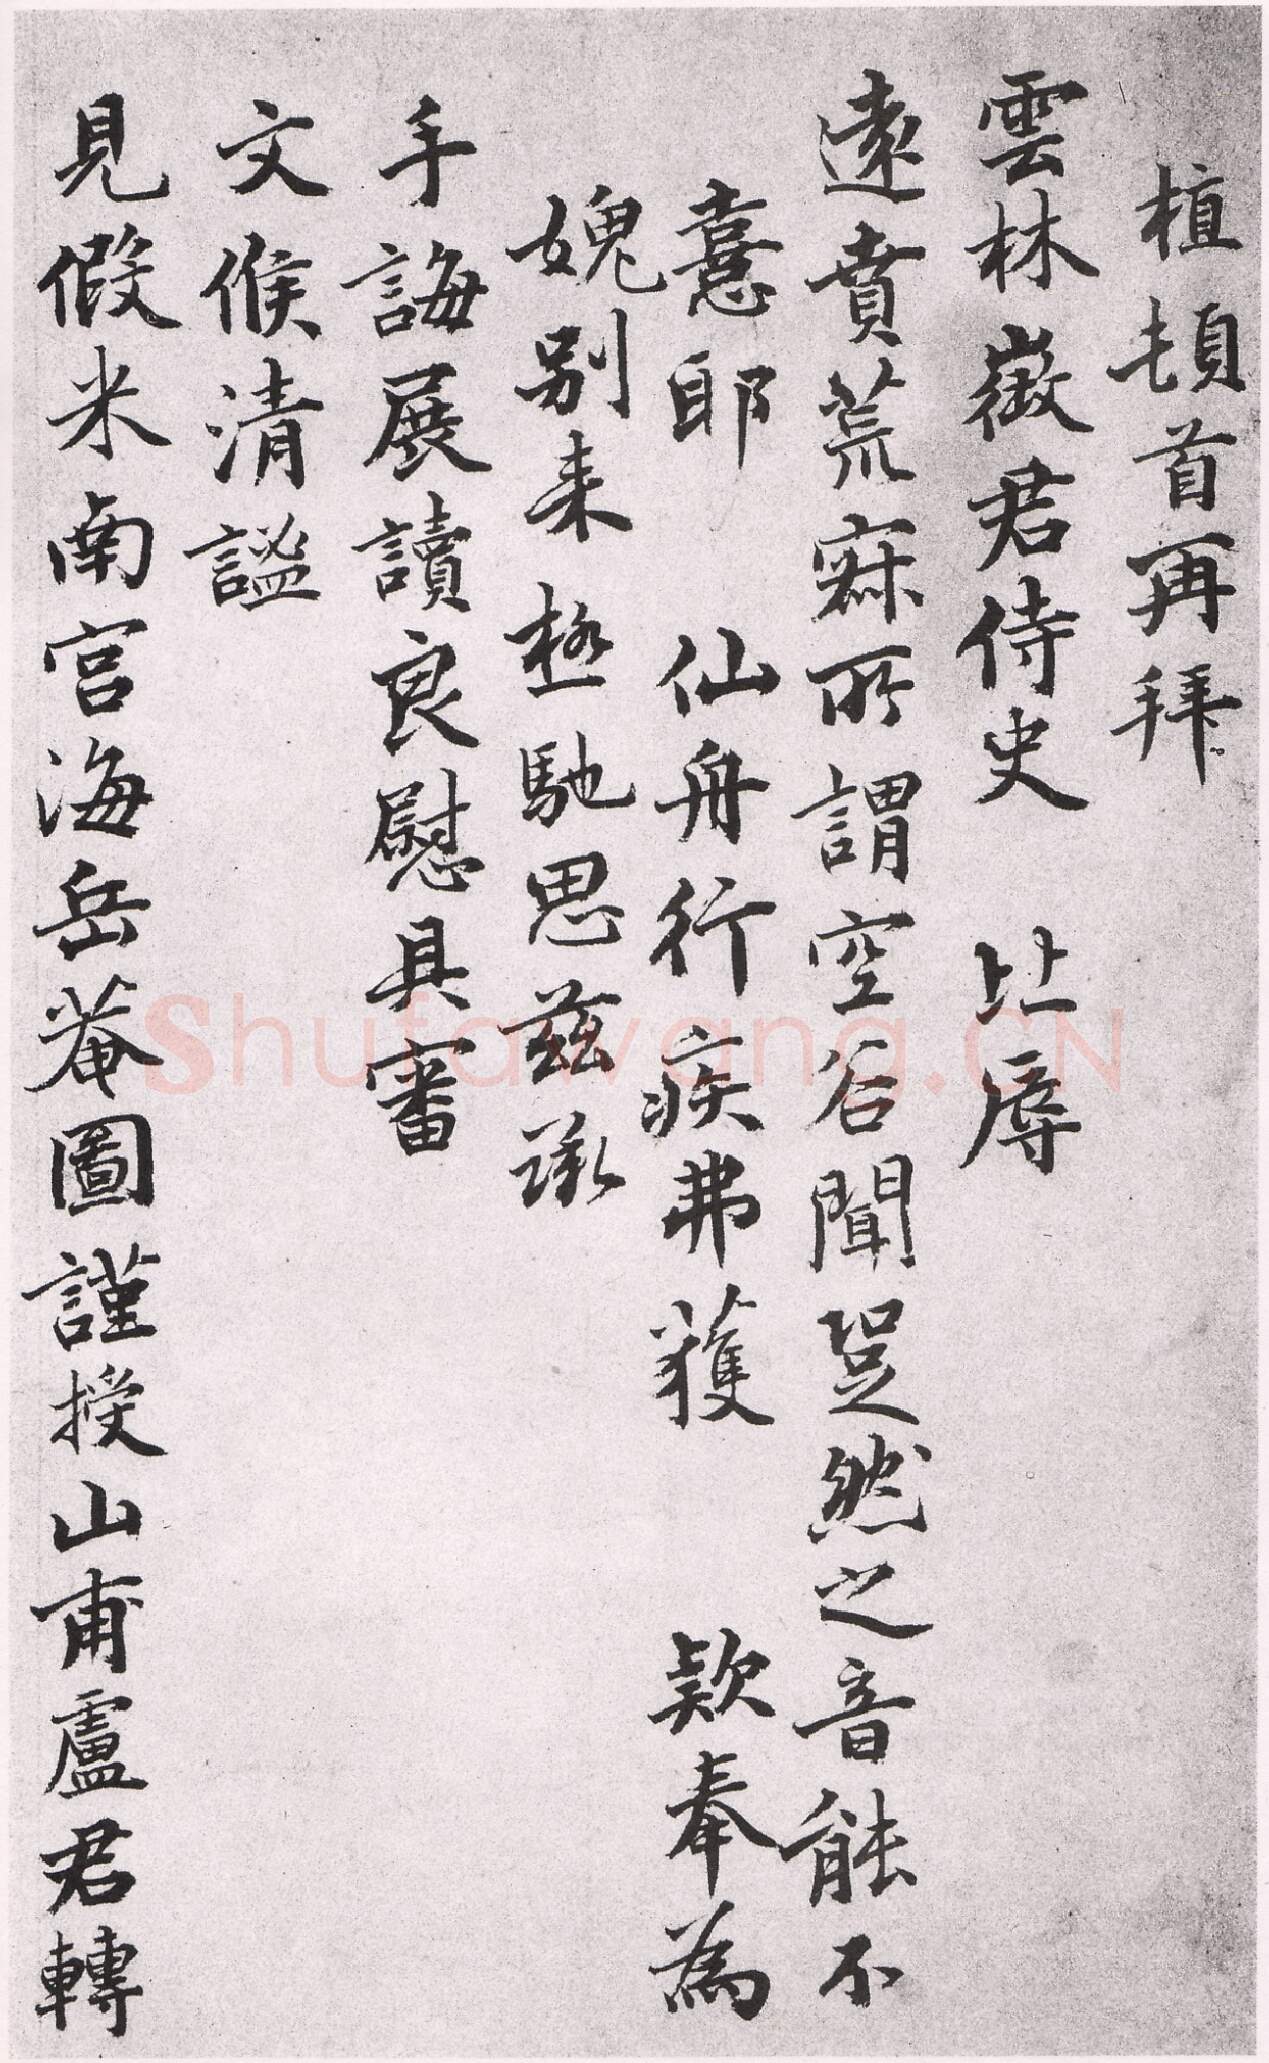 植頓首再拜
雲林徵君侍史 比辱
遠賁荒寐所謂空谷聞跫然之音能不
憙耶 仙舟行疾弗獲 欵奉為
媿别来極馳思兹承
手誨展讀良慰具審
文候清謐
見假米南宮海岳菴圖謹授山甫盧君轉
Shufawang.CN